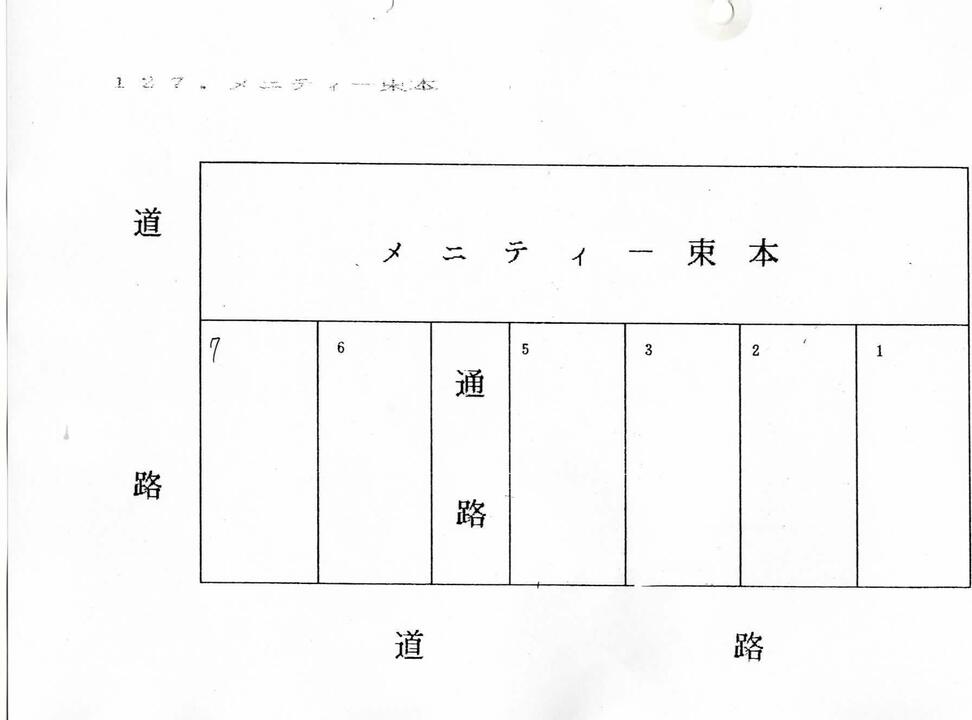 127.メニティー束本
メニティー束本
道路
7 6 通路 5 3 2 1
道路